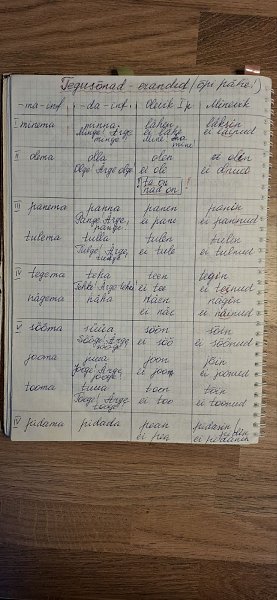 Tegusõnad - erandid (õpi pähe!)
-ma-inf. -da-inf. Olevik 1.p. Minevik
I minema minna lähen läksin
Minge! Ärge ei lähe ei läinud
minge! Mine! Ära
mine
II olema olla olen olin
Olge! Ärge olge ei ole ei olnud
ta on
nad on
III panema panna panen panin
Pange. Ärge ei pane ei pannud
pange!
tulema tulla tulen tulin
Tulge! Ärge ei tule ei tulnud
IV tegema teha teen tegin
Tehke! Ärge tehke! ei tee ei teinud
nägema näha näen nägin
ei näe ei näinud
V sööma süüa söön sõin
Sööge! Ärge ei söö ei söönud
sööge!
jooma juua joon jõin
Jooge! Ärge ei joo ei joonud
jooge!
tooma tuua toon tõin
Tooge! Ärge ei too ei toonud
tooge!
pidama pidada pean pidasin
ei pea ei pidanud